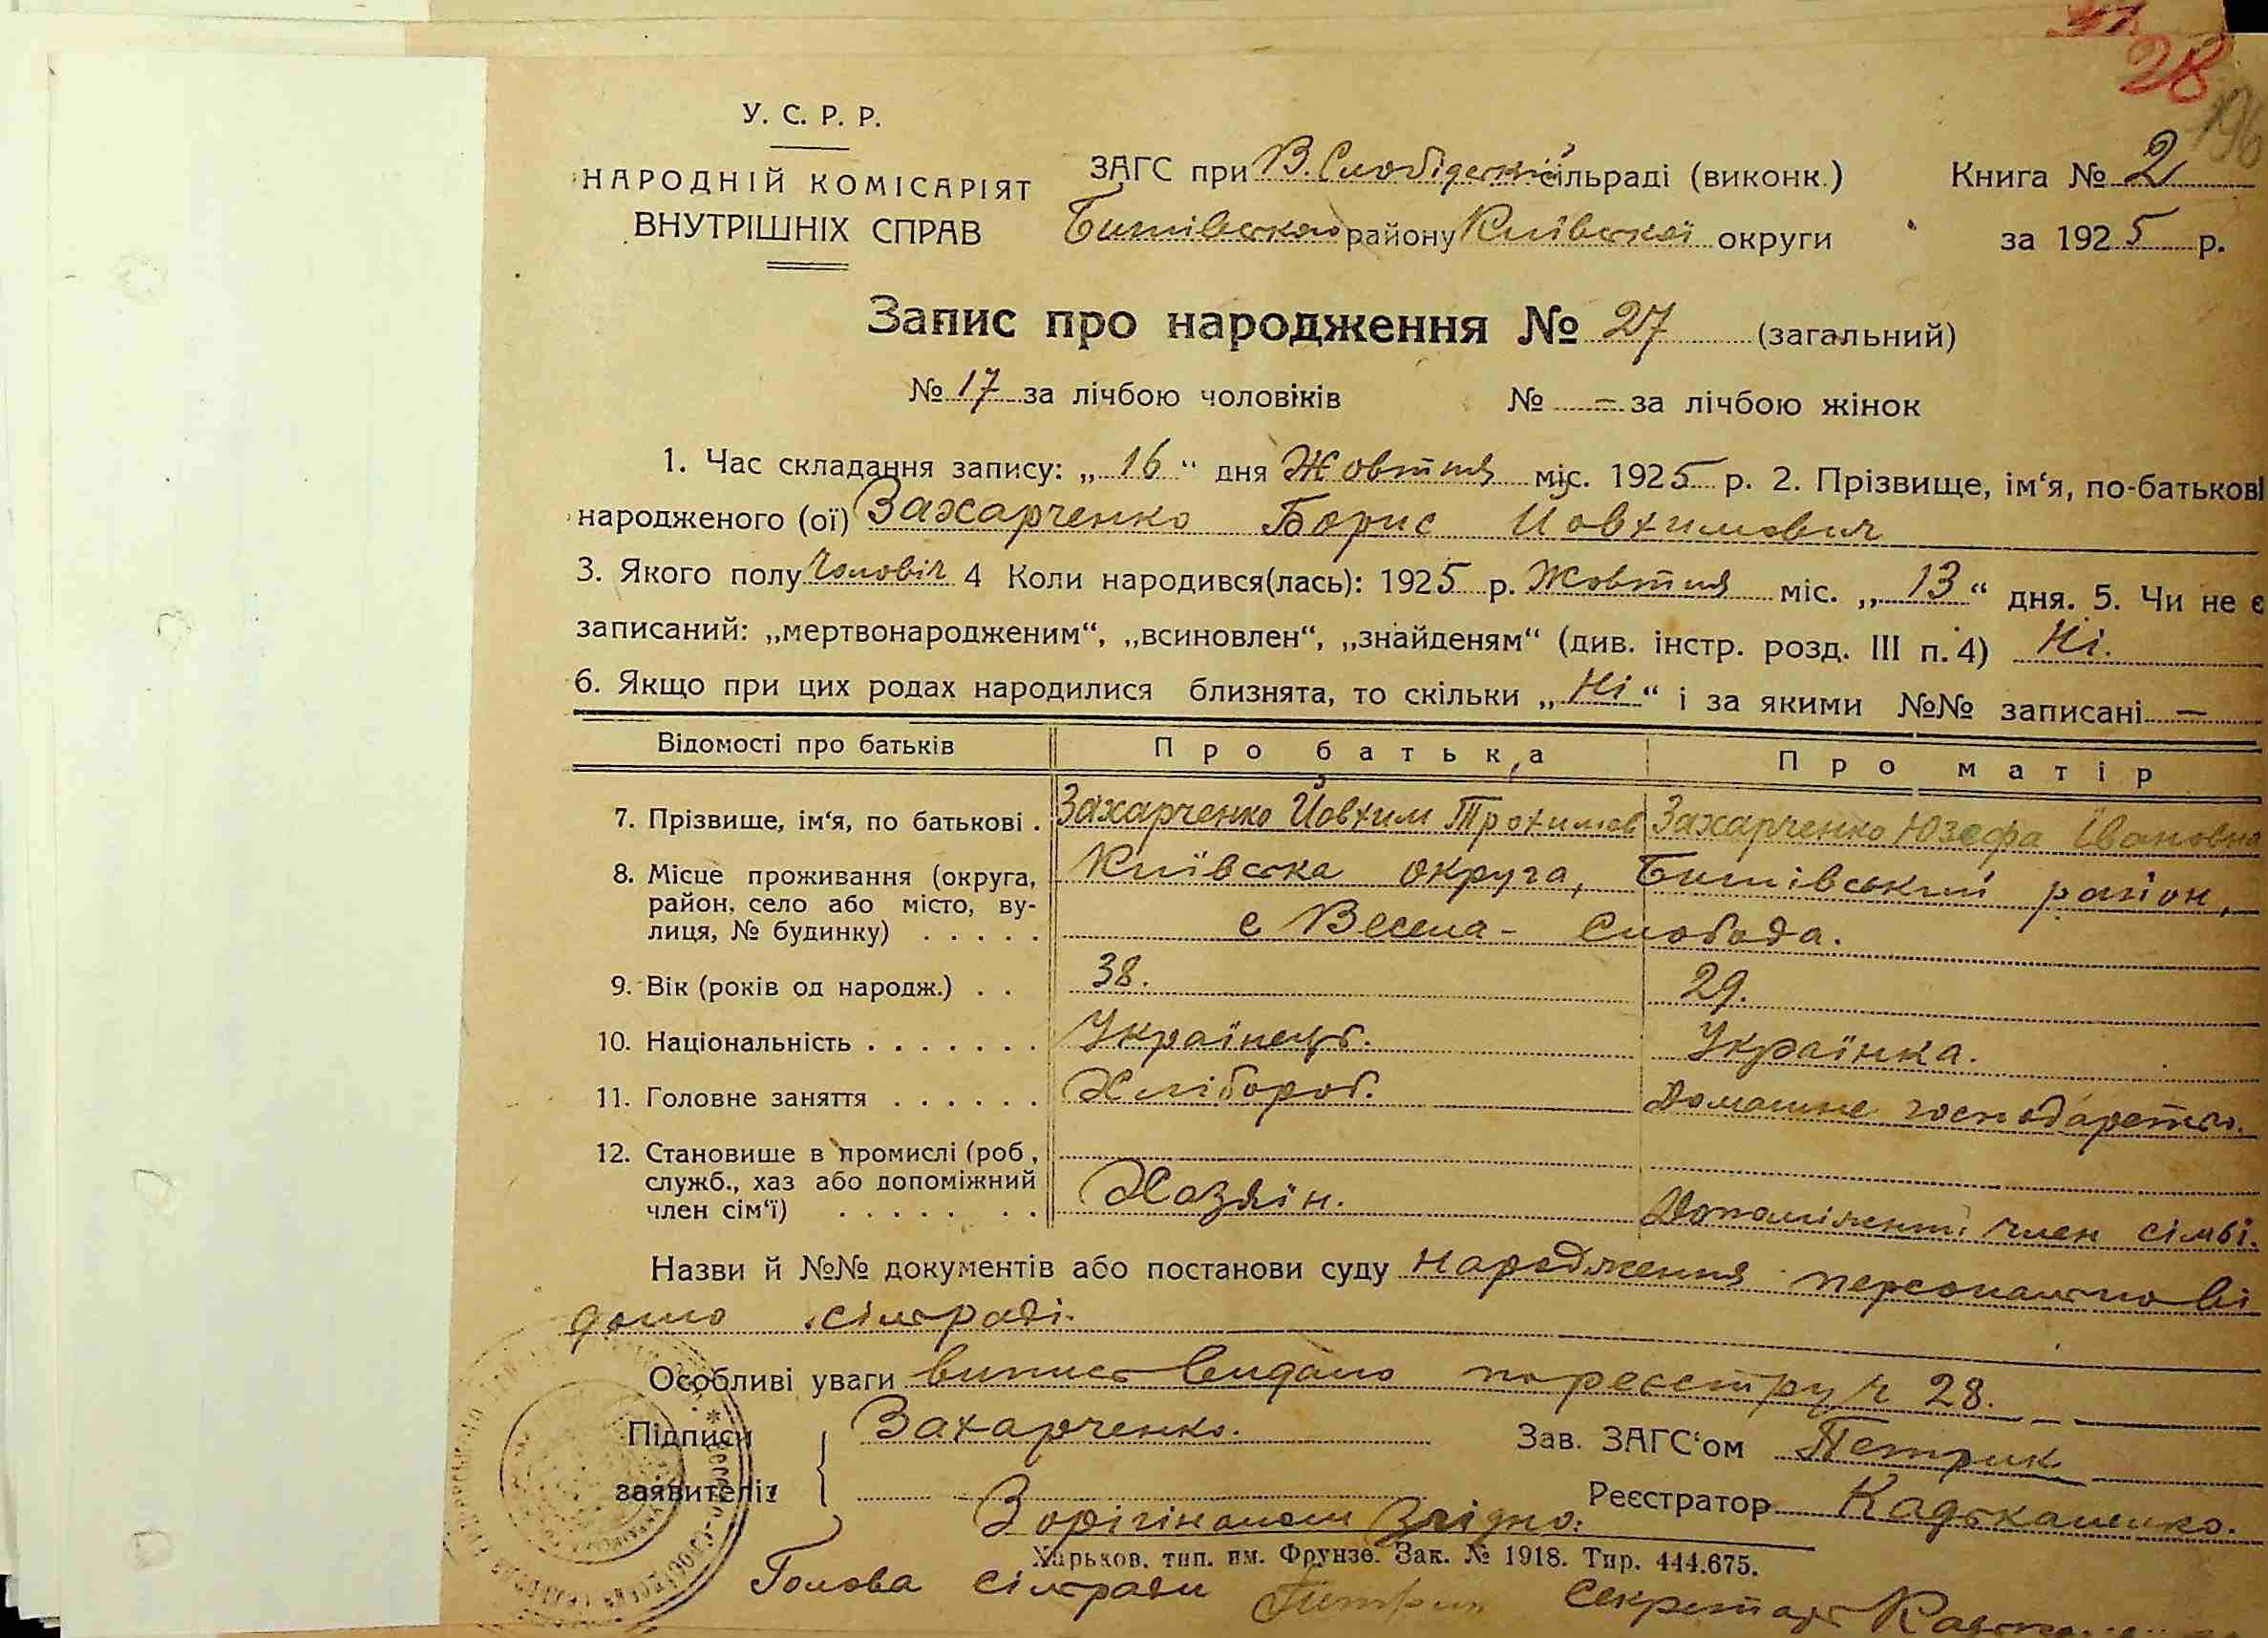 28
196
У. С. Р. Р.
НАРОДНІЙ КОМІСАРІЯТ
ВНУТРІШНІХ СПРАВ
ЗАГС при В. Слобідській сільраді (виконк.)
Бишівського району Київської округи
Книга № 2
за 1925 р.
Запис про народження № 27 (загальний)
№ 17 за лічбою чоловіків № – за лічбою жінок
1. Час складання запису: „16“ дня Жовтня міс. 1925 р. 2. Прізвище, ім‘я, по-батькові
народженого (ої) Захарченко Борис Йовхимович
3. Якого полу Чоловіч 4 Коли народився(лась): 1925 р. Жовтня міс. „13“ дня. 5. Чи не є
записаний: „мертвонародженим“, „всиновлен“, „знайденям“ (див. інстр. розд. III п. 4) Ні.
6. Якщо при цих родах народилися близнята, то скільки „Ні“ і за якими №№ записані —
Відомості про батьків Про батька Про матір
7. Прізвище, ім‘я, по батькові . Захарченко Йовхим Трохимов Захарченко Юзефа Івановна
8. Місце проживання (округа, Київська округа, Бишівський район,
район, село або місто, ву- с Весела - Слобода.
лиця, № будинку) . . . . .
9. Вік (років од народж.) . . 38. 29.
10. Національність . . . . . . . Українець. Українка.
11. Головне заняття . . . . . . Хлібороб. Домашне господарство.
12. Становише в промислі (роб ,
служб., хаз або допоміжний Хазяїн. Допоміжний член сімві.
член сім‘ї) . . . . . . .
Назви й №№ документів або постанови суду народження персонально ві
домо сільраді.
Особливі уваги випись видано по реєстру ч 28.
Підписи Захарченко. Зав. ЗАГС‘ом Петрик
заявителів Реєстратор
З орігіналом згідно.
Харьков. тип. им. Фрунзе. Зак. № 1918. Тир. 444.675.
Голова сільради Петрик Секретарь